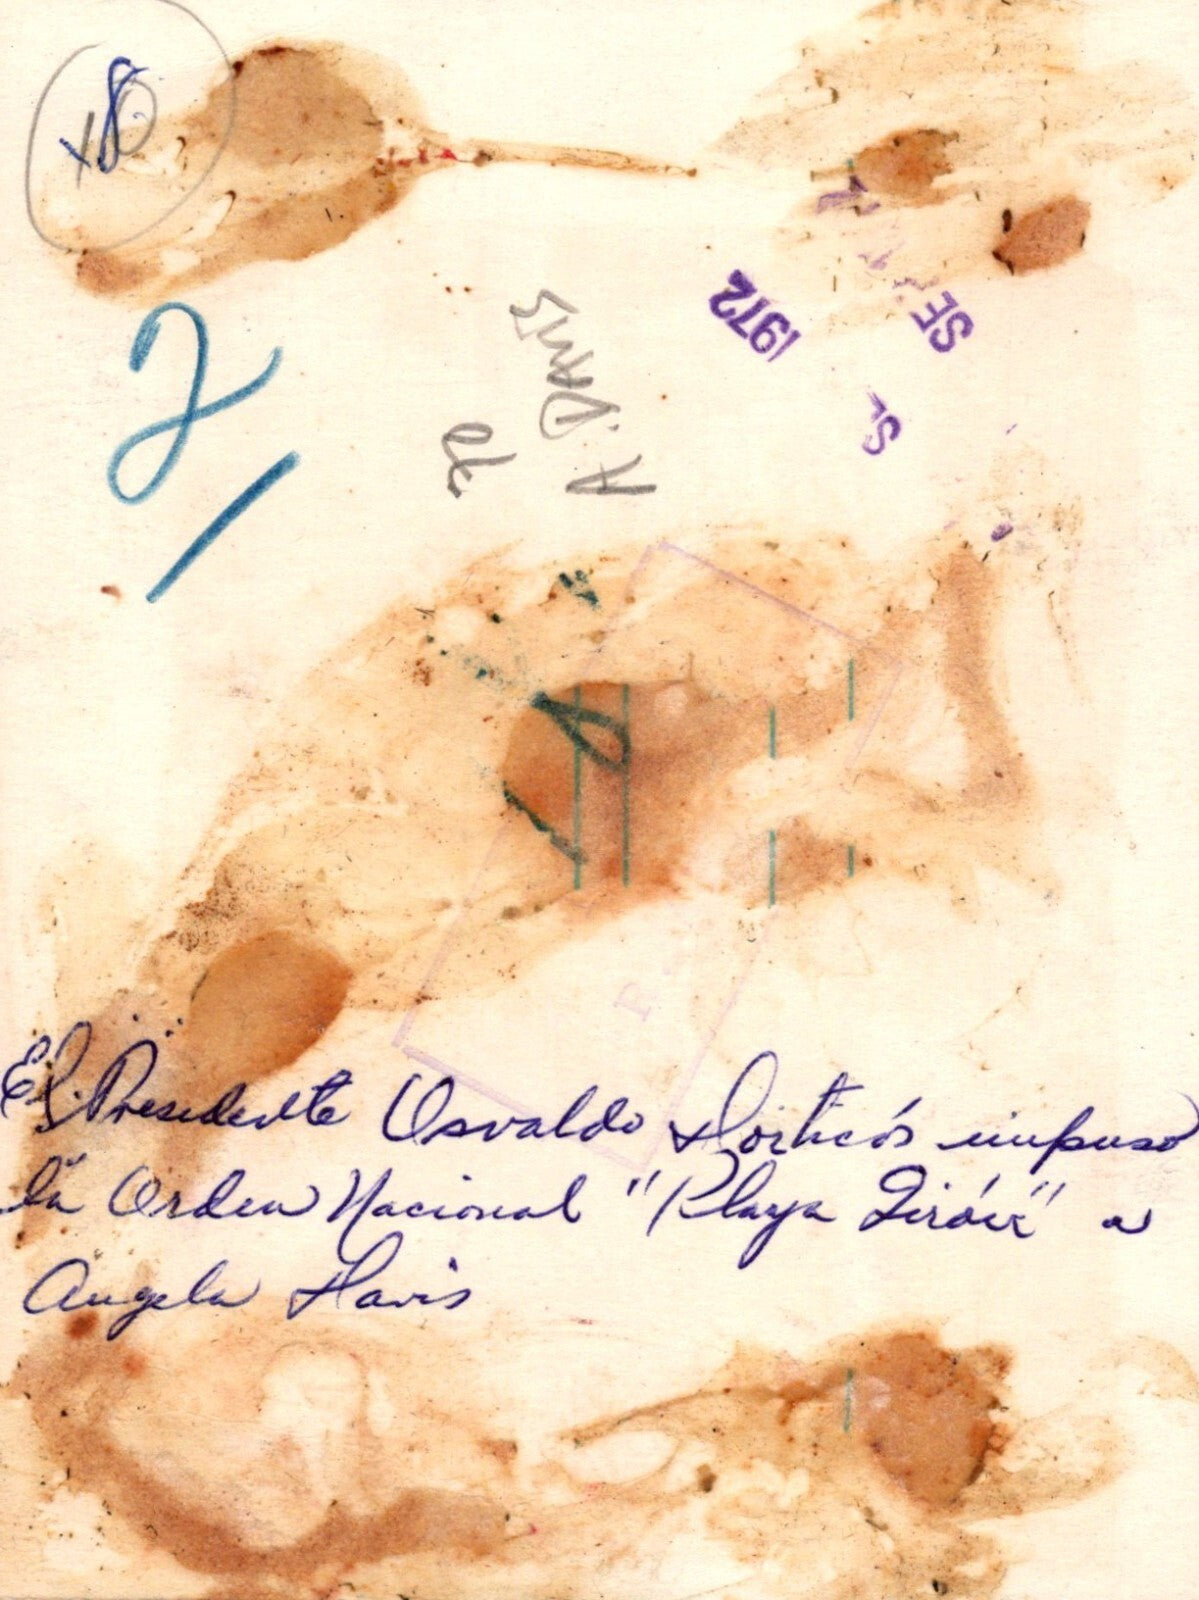 x8
2
A. DAVIS
1972
SE
SE
El Presidente Osvaldo Dorticós impuso
la Orden Nacional "Playa Girón" a
Angela Davis